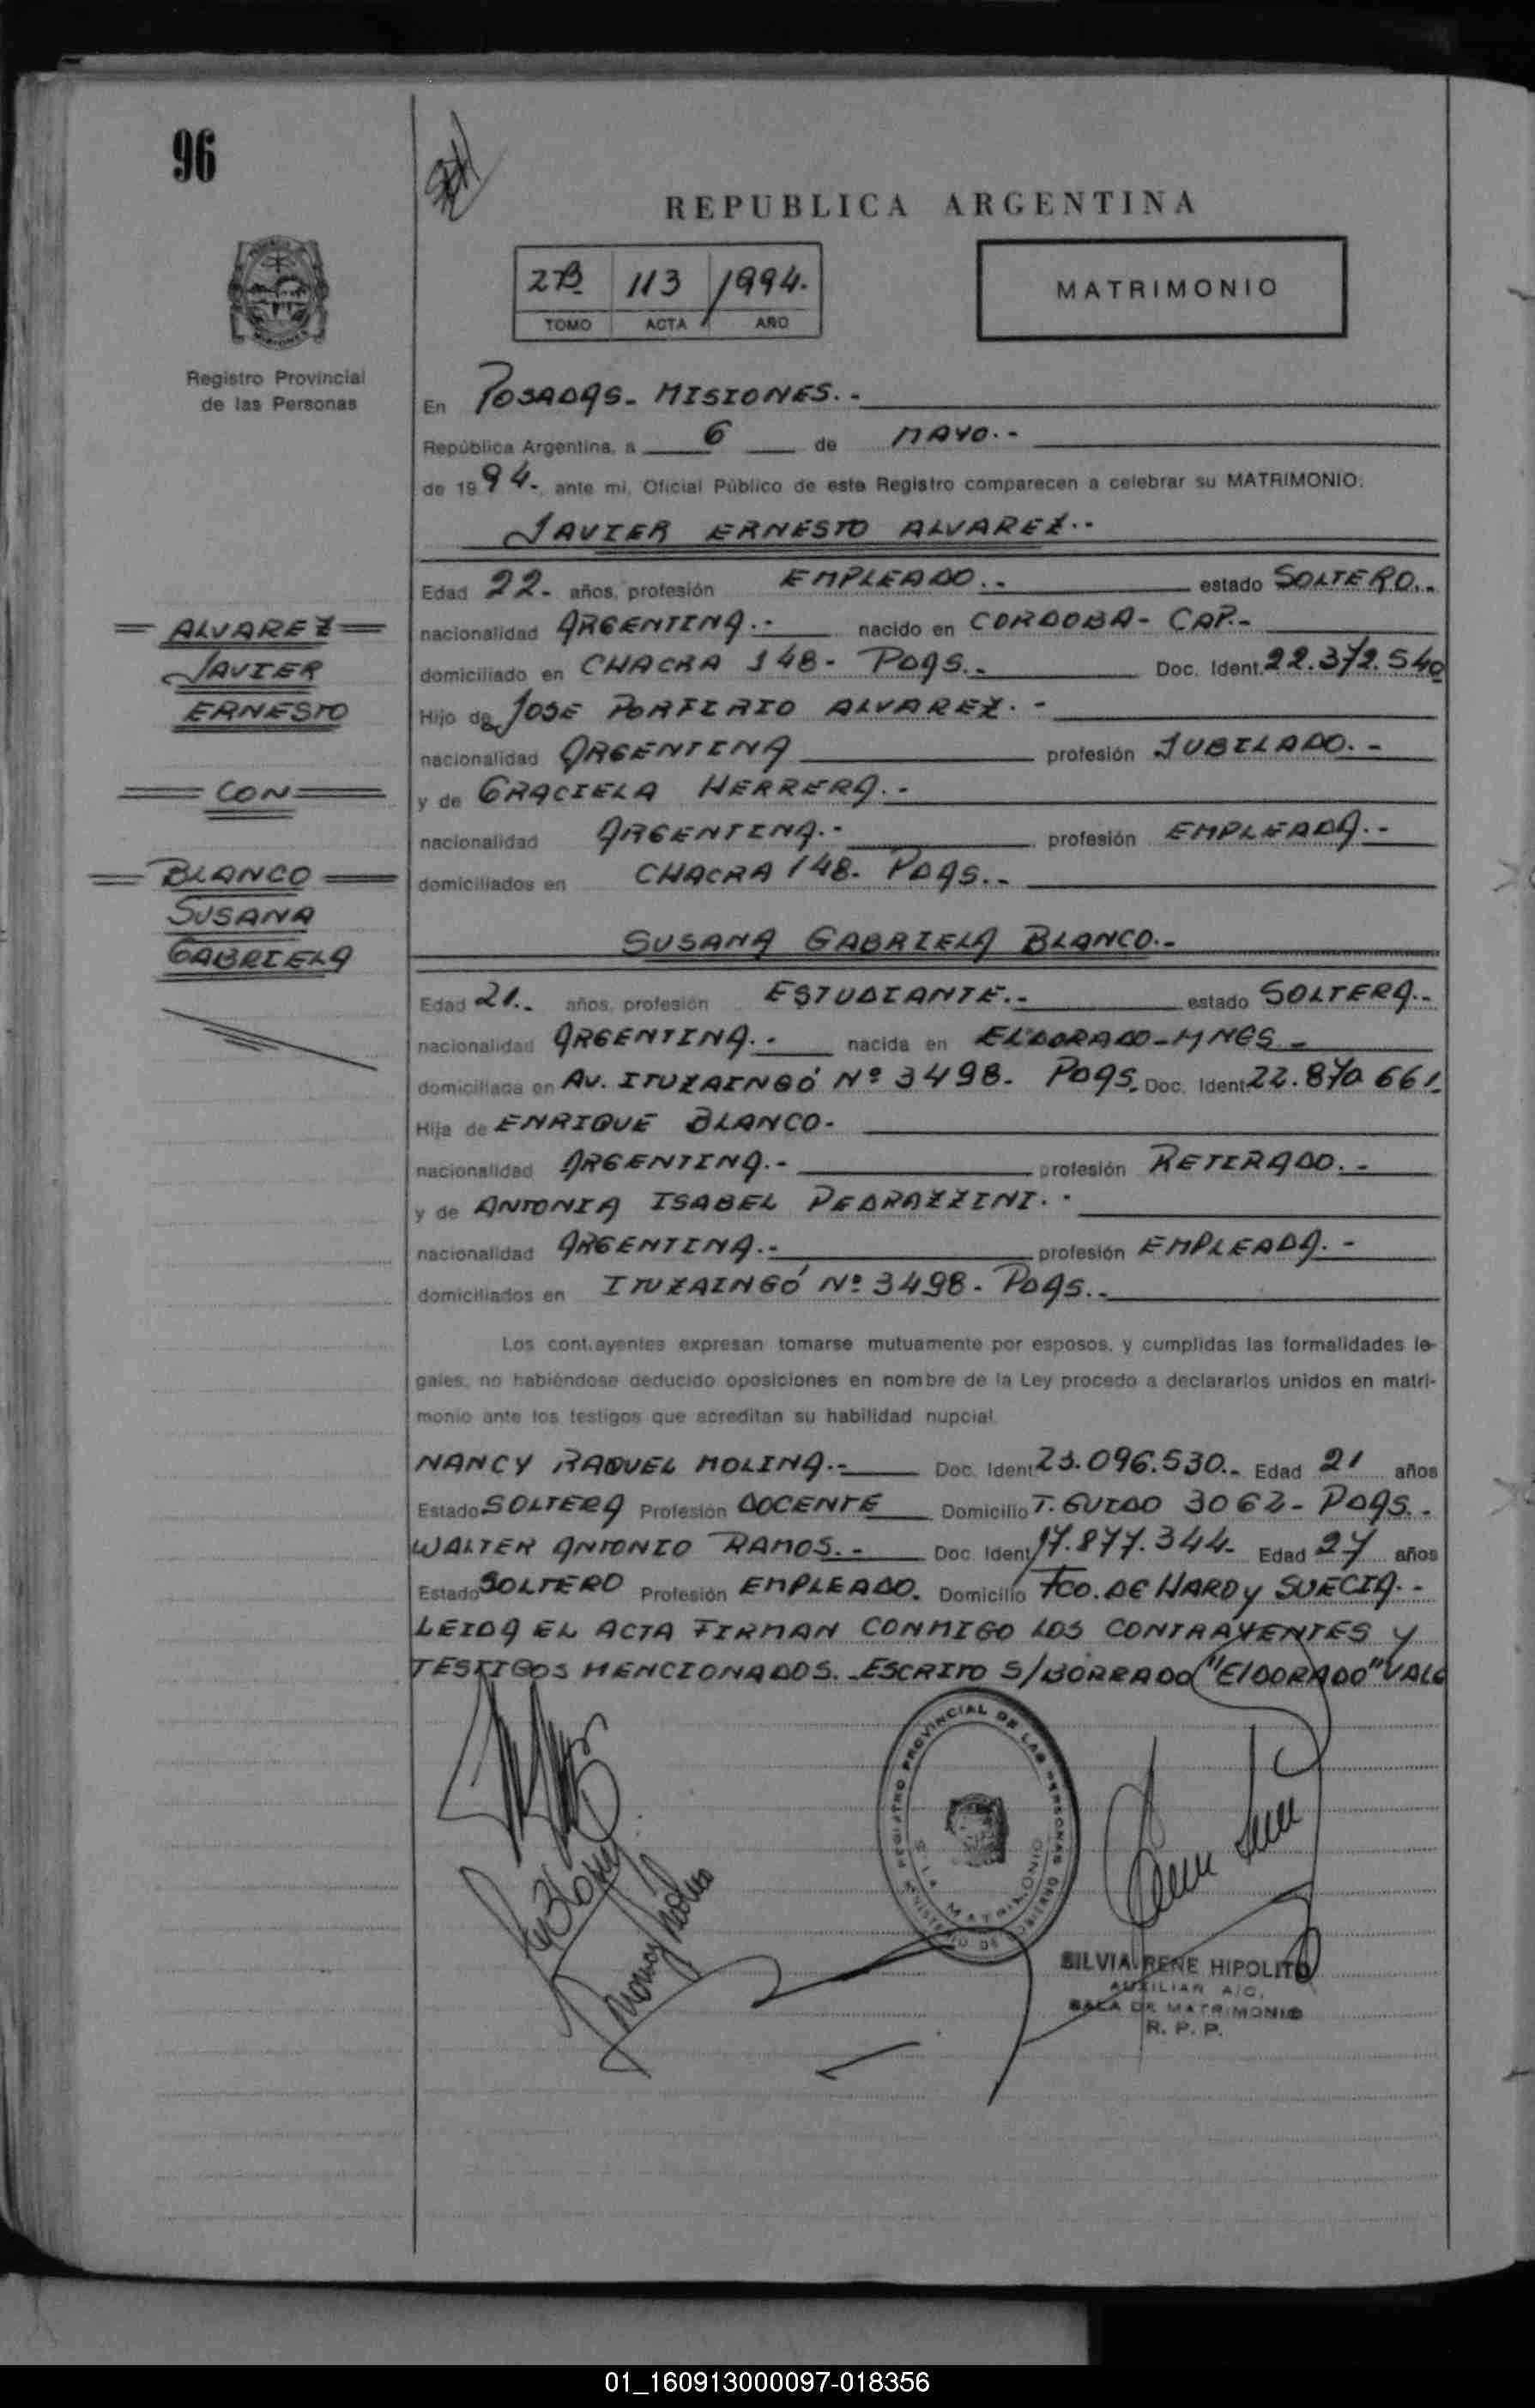 96
REPUBLICA ARGENTINA
2B 113 1994.
TOMO ACTA AÑO
MATRIMONIO
Registro Provincial
de las Personas
En POSADAS- MISIONES.-
República Argentina, a 6 de MAYO.-
de 1994-, ante mi, Oficial Público de este Registro comparecen a celebrar su MATRIMONIO:
JAVIER ERNESTO ALVAREZ.-
Edad 22- años, profesión EMPLEADO.- estado SOLTERO.-
nacionalidad ARGENTINA.- nacido en CORDOBA- CAP.-
domiciliado en CHACRA 148- PDAS.- Doc. Ident. 22.372.540
Hijo de JOSE PORFIRIO ALVAREZ.-
nacionalidad ARGENTINA profesión JUBILADO.-
y de GRACIELA HERRERA.-
nacionalidad ARGENTINA.- profesión EMPLEADA.-
domiciliados en CHACRA 148- PDAS.-
ALVAREZ
JAVIER
ERNESTO
CON
BLANCO
SUSANA
GABRIELA
SUSANA GABRIELA BLANCO.-
Edad 21.- años, profesión ESTUDIANTE.- estado SOLTERA.-
nacionalidad ARGENTINA.- nacida en ELDORADO-MNES.-
domiciliada en AV. ITUZAINGÓ Nº 3498- PDAS. Doc. Ident. 22.870 661.
Hija de ENRIQUE BLANCO-
nacionalidad ARGENTINA.- profesión RETIRADO.-
y de ANTONIA ISABEL PEDRAZZINI.-
nacionalidad ARGENTINA.- profesión EMPLEADA.-
domiciliados en ITUZAINGÓ Nº 3498- PDAS.-
Los contrayentes expresan tomarse mutuamente por esposos, y cumplidas las formalidades le-
gales, no habiéndose deducido oposiciones en nombre de la Ley procedo a declararlos unidos en matri-
monio ante los testigos que acreditan su habilidad nupcial.
NANCY RAQUEL MOLINA.- Doc. Ident. 23.096.530.- Edad 21 años
Estado SOLTERA Profesión DOCENTE Domicilio T. GUIDO 3062- PDAS.-
WALTER ANTONIO RAMOS.- Doc. Ident. 17.877.344- Edad 27 años
Estado SOLTERO Profesión EMPLEADO. Domicilio FCO. DE HARO y SUECIA.-
LEIDA EL ACTA FIRMAN CONMIGO LOS CONTRAYENTES Y
TESTIGOS MENCIONADOS.-ESCRITO S/BORRADO "ElDORADO" VALE
REGISTRO PROVINCIAL DE LAS PERSONAS
MINISTERIO DE
MATRIMONIO
SILVIA RENE HIPOLITO
AUXILIAR A/C.
SALA DE MATRIMONIO
R. P. P.
01_160913000097-018356